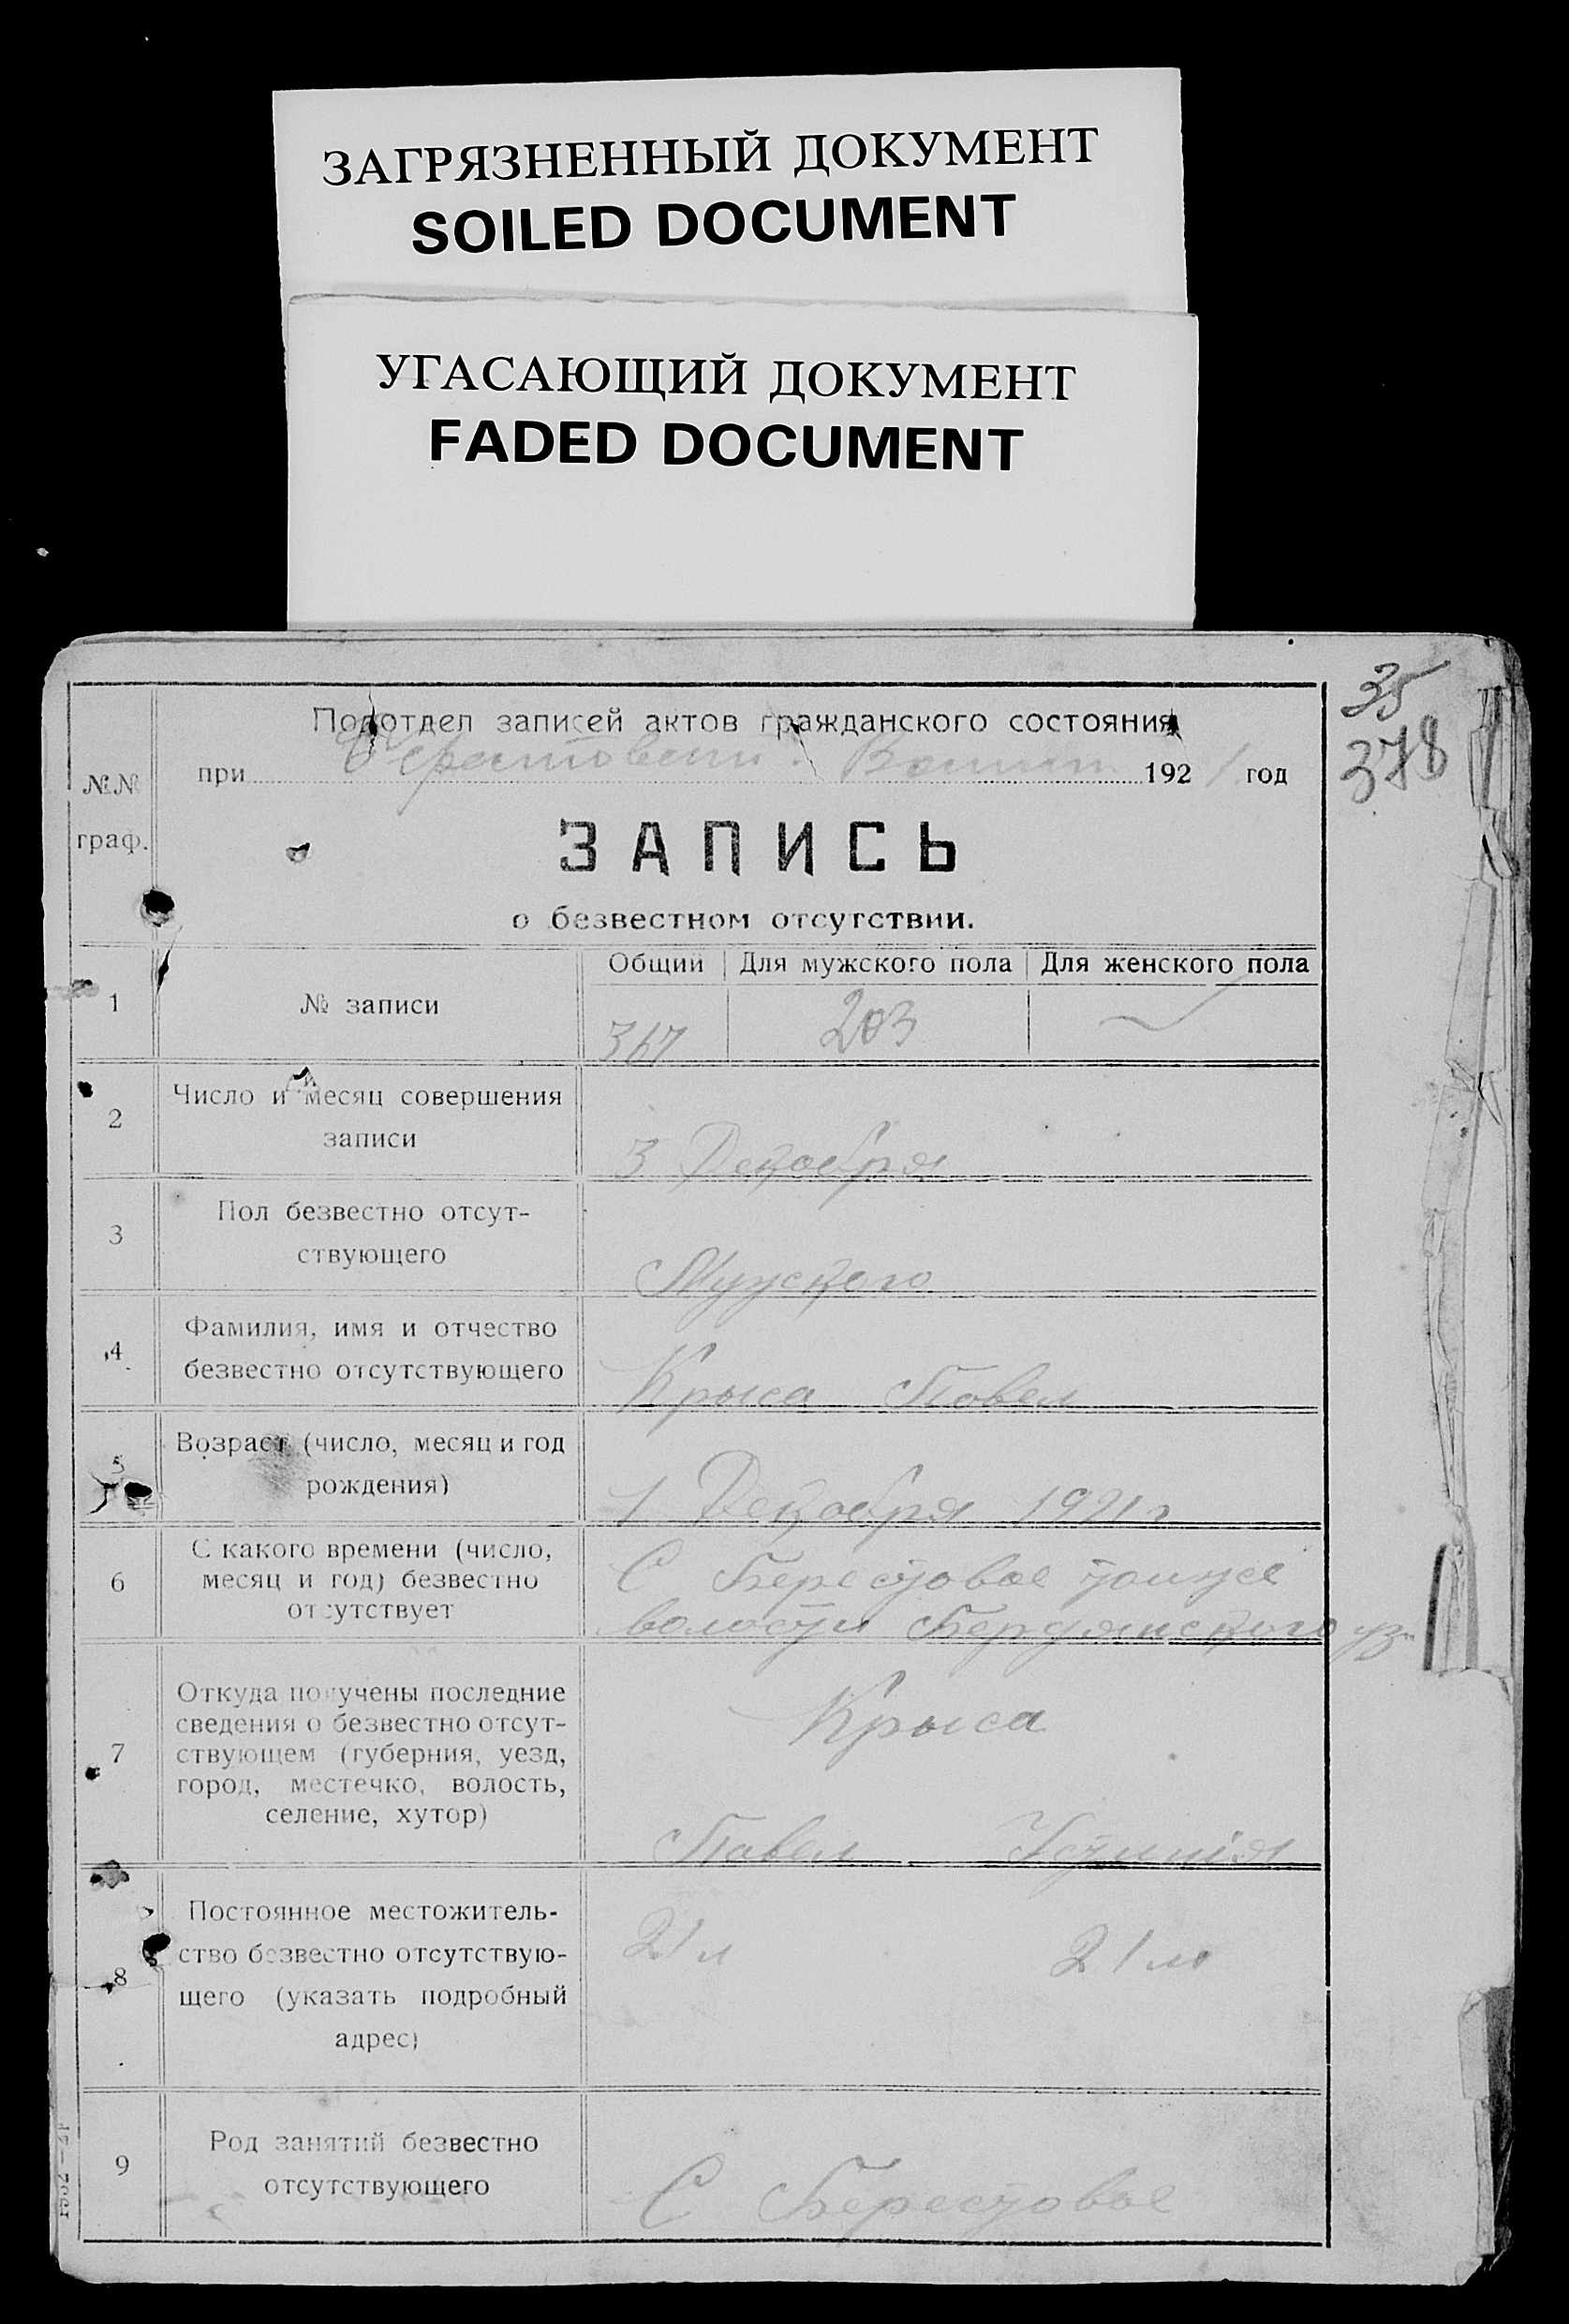 ЗАГРЯЗНЕННЫЙ ДОКУМЕНТ
SOILED DOCUMENT
УГАСАЮЩИЙ ДОКУМЕНТ
FADED DOCUMENT
35
378
Подотдел записей актов гражданского состояния
при 192 1 год
№№
граф.
ЗАПИСЬ
о безвестном отсутствии.
Общий Для мужского пола Для женского пола
1 № записи 367 203
2 Число и месяц совершения
записи
3 Декабря
3 Пол безвестно отсут-
ствующего
Мужского
4 Фамилия, имя и отчество
безвестно отсутствующего
Крыса Повел
5 Возраст (число, месяц и год
рождения)
1 Декабря 1921 г
6 С какого времени (число,
месяц и год) безвестно
отсутствует
С Берестовое
волости Бердянского уз
7 Откуда получены последние
сведения о безвестно отсут-
ствующем (губерния, уезд,
город, местечко, волость,
селение, хутор)
Крыса
Павел Устинія
8 Постоянное местожитель-
ство безвестно отсутствую-
щего (указать подробный
адрес)
21 л 21
9 Род занятий безвестно
отсутствующего
С Берестовое